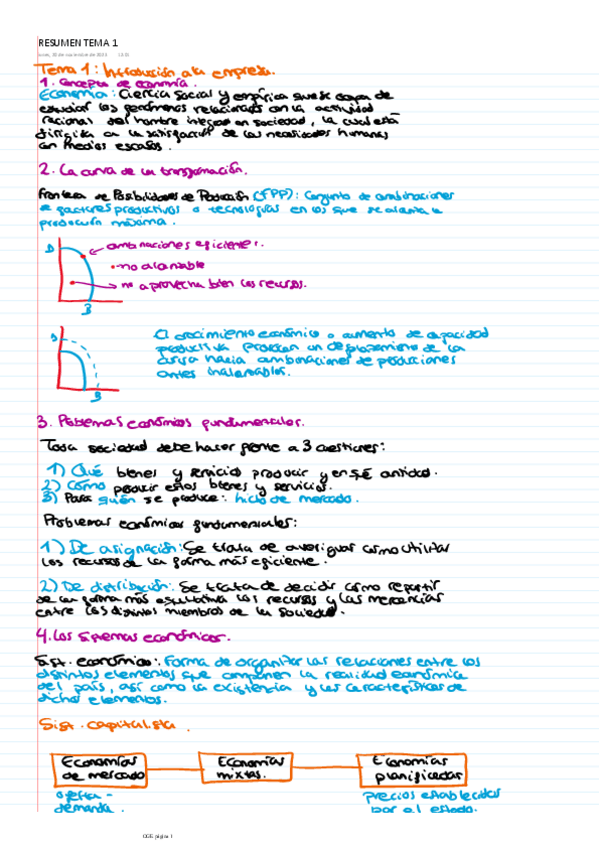 RESUMEN TEMA 1
Tema 1: Introducción a la empresa.
1. Concepto de economía.
Economía: Ciencia social y empírica que se ocupa de
estudiar los fenómenos relacionados con la actividad
racional del hombre integrado en sociedad, la cual está
dirigida a la satisfacción de las necesidades humanas
con medios escasos.
2. La curva de un transformación.
Frontera de Posibilidades de Producción (FPP): Conjunto de combinaciones
de factores productivos o tecnologías en los que se alcanza la
producción máxima.
combinaciones eficientes.
no alcanzable
no aprovecha bien los recursos.
B
El crecimiento económico o aumento de capacidad
productiva provocan un desplazamiento de la
curva hacia combinaciones de producciones
antes inalcanzables.
B
3. Problemas económicos fundamentales.
Toda sociedad debe hacer frente a 3 cuestiones:
1) Qué bienes y servicios producir y en qué cantidad.
2) Cómo producir estos bienes y servicios.
3) Para quién se produce: nicho de mercado.
Problemas económicos fundamentales:
1) De asignación: Se trata de averiguar cómo utilizar
los recursos de la forma más eficiente.
2) De distribución: Se trata de decidir cómo repartir
de la forma más equitativa los recursos y las mercancías
entre los distintos miembros de la sociedad.
4. Los sistemas económicos.
Sist. económicos: Forma de organizar las relaciones entre los
distintos elementos que componen la realidad económica
del país, así como la existencia y las características de
dichos elementos.
Sist. capitalista
Economías de mercado
Economías mixtas.
Economías planificadas
oferta - demanda.
Precios establecidos por el estado.
OGE página 1